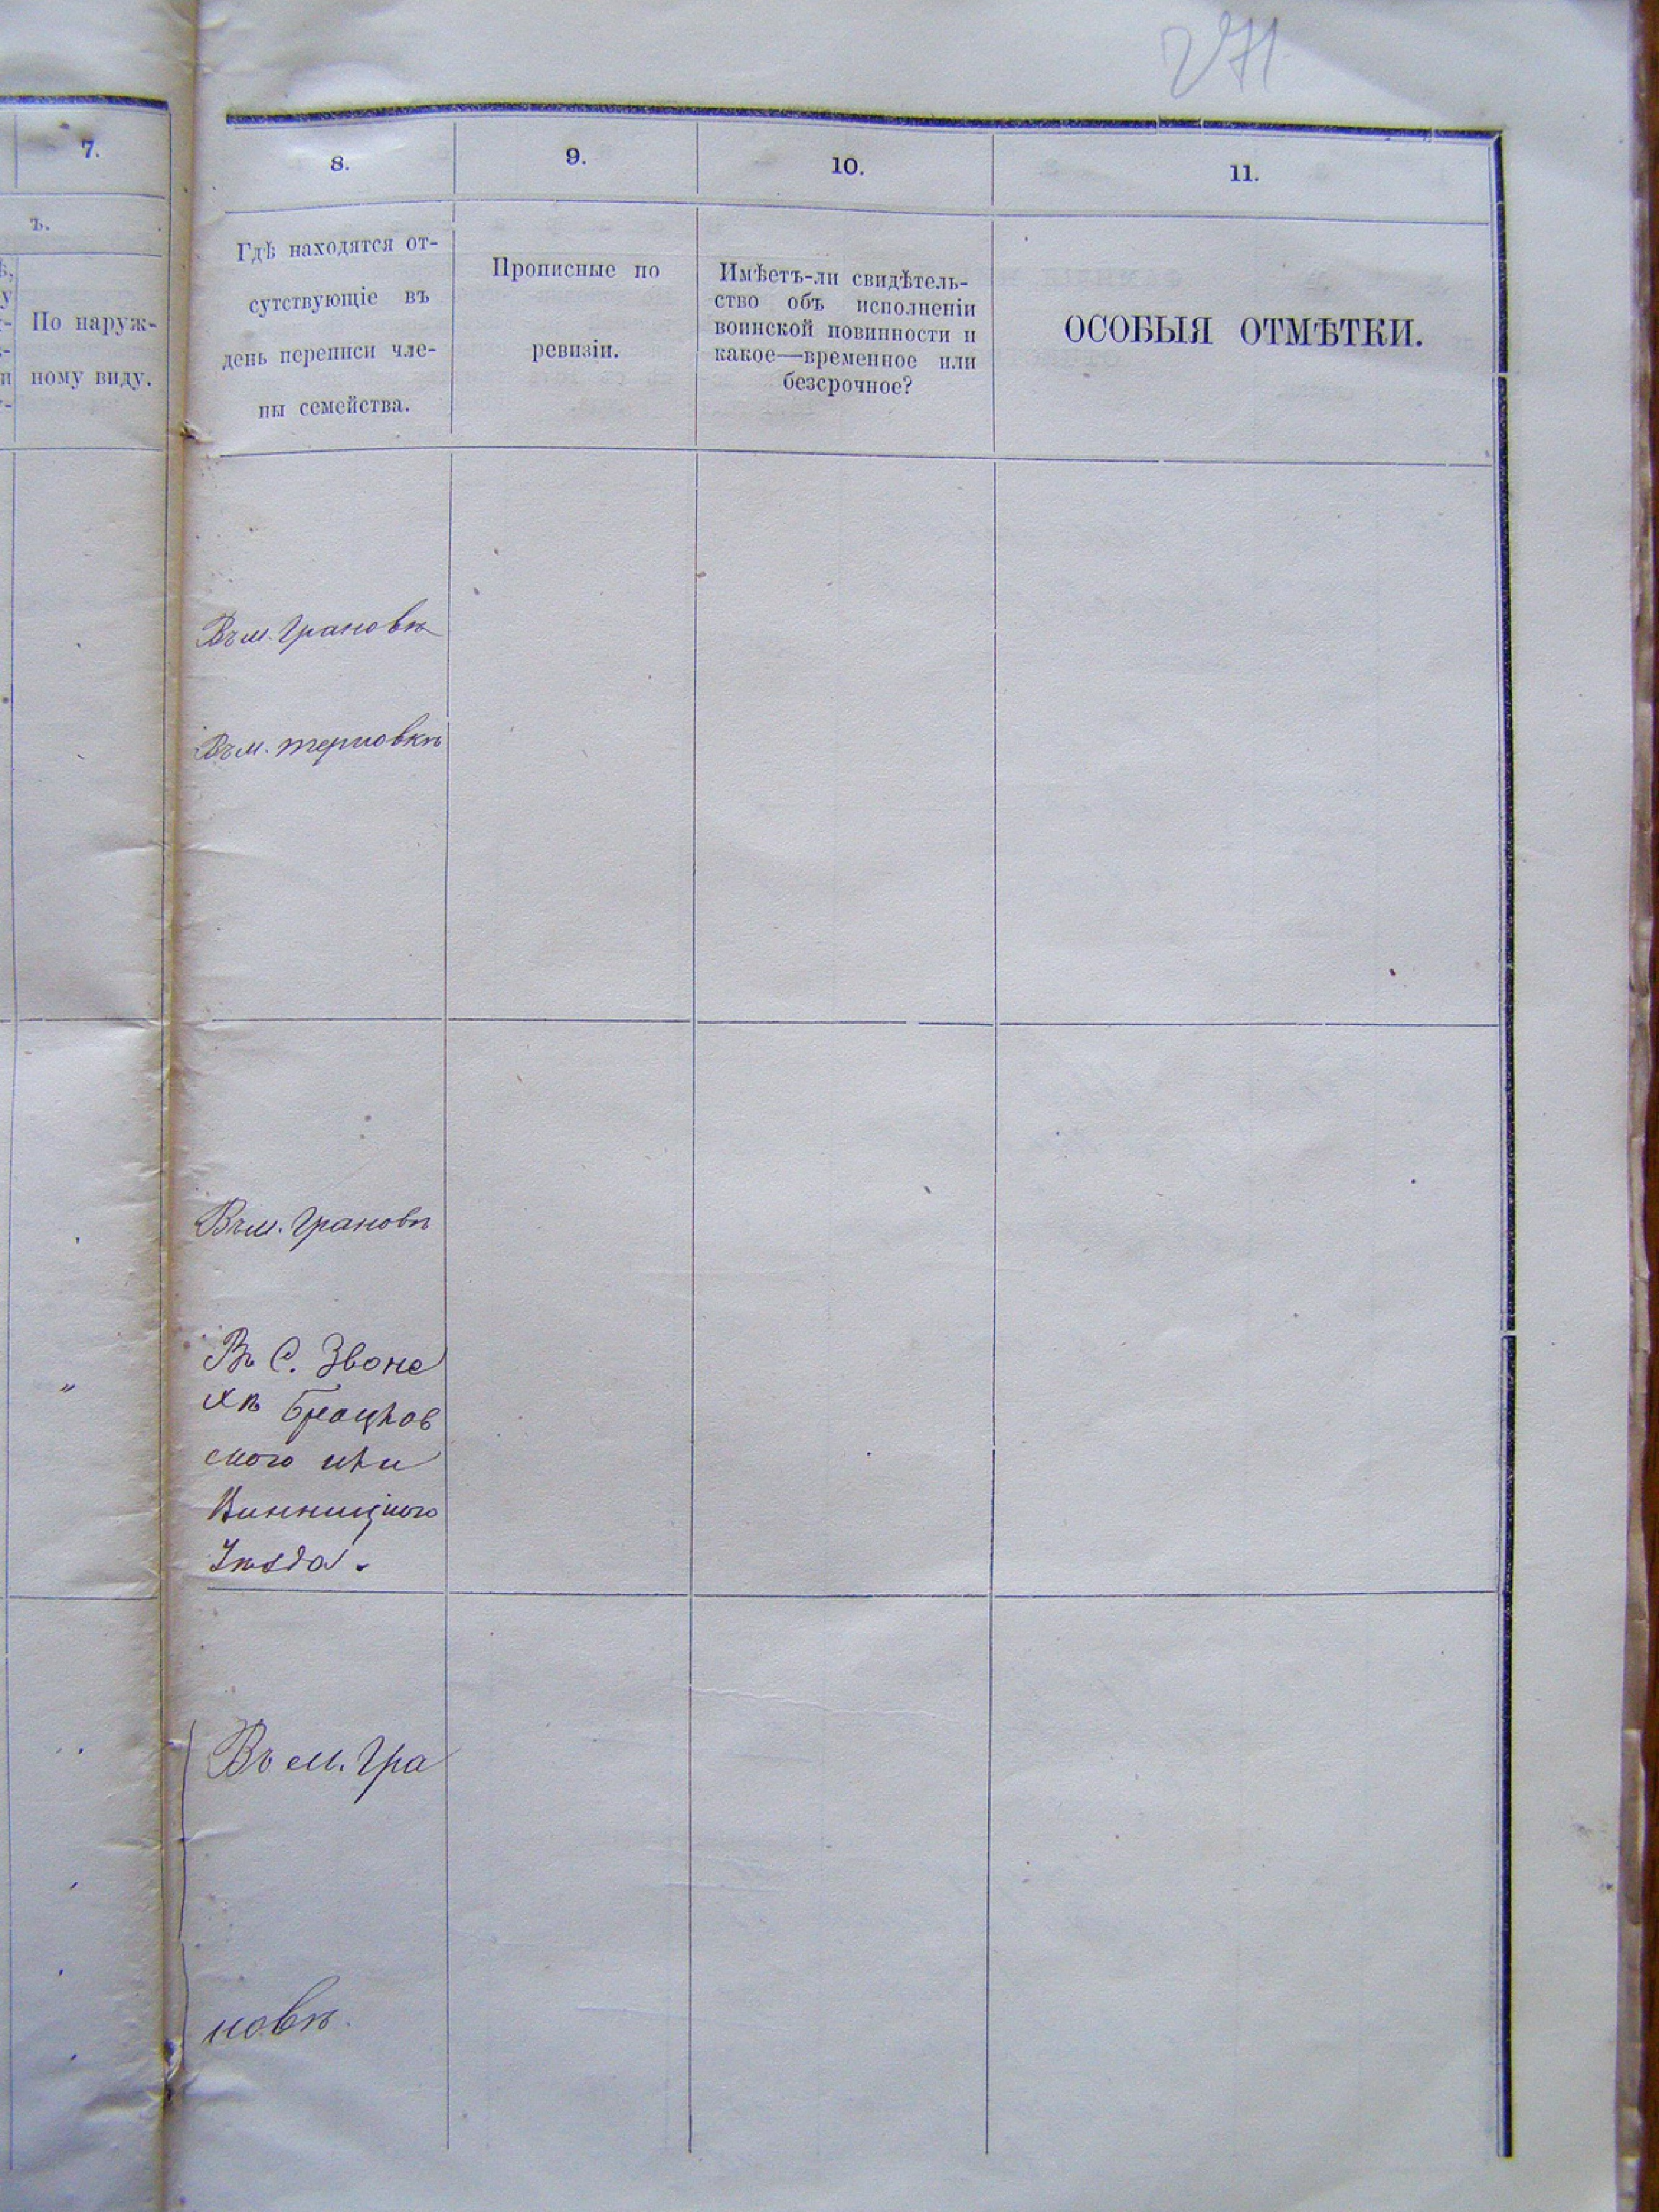 271
7.
8.
9.
10.
11.
ъ.
По наруж-
ному виду.
Гдѣ находятся от-
сутствующіе въ
день переписи чле-
ны семейства.
Прописные по
ревизіи.
Имѣетъ-ли свидѣтель-
ство объ исполненіи
воинской повинности и
какое—временное или
безсрочное?
ОСОБЫЯ ОТМѢТКИ.
Въ м. Грановѣ
Въ м. Терновкѣ
Въ м. Грановѣ
Въ С. Звоне
хѣ Брацлов
ского или
Винницкого
Уѣзда.
Въ м. Гра
новѣ.